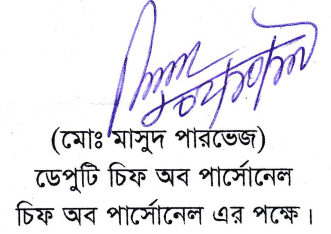 (মোঃ মাসুদ পারভেজ)
ডেপুটি চিফ অব পার্সোনেল
চিফ অব পার্সোনেল এর পক্ষে।